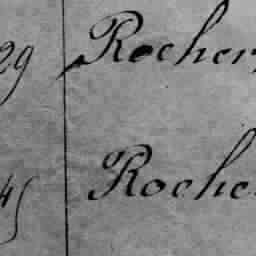 29 Rocher,
45 Roche